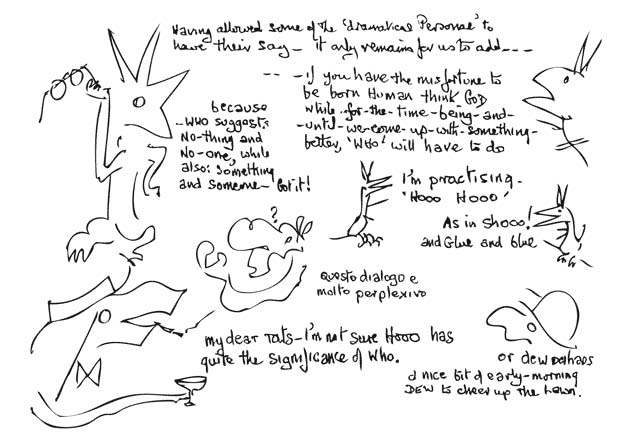 Having allowed some of the 'dramatical Personae' to
have their say - it only remains for us to add - - -
- - - if you have the misfortune to
be born Human think GOD
while-for-the-time-being-and-
-until-we-come-up-with-something-
better, 'WHO' will have to do
because
-WHO suggests
No-thing and
No-one, while
also: something
and someone- Got it!
I'm practising-
'Hooo Hooo'
As in Shooo!
and Glue and blue
?
Questo dialogo e
molto perplexivo
my dear Tats-I'm not sure Hooo has
quite the significance of Who.
or dew perhaps
a nice bit of early-morning
DEW to cheer up the Lawn.